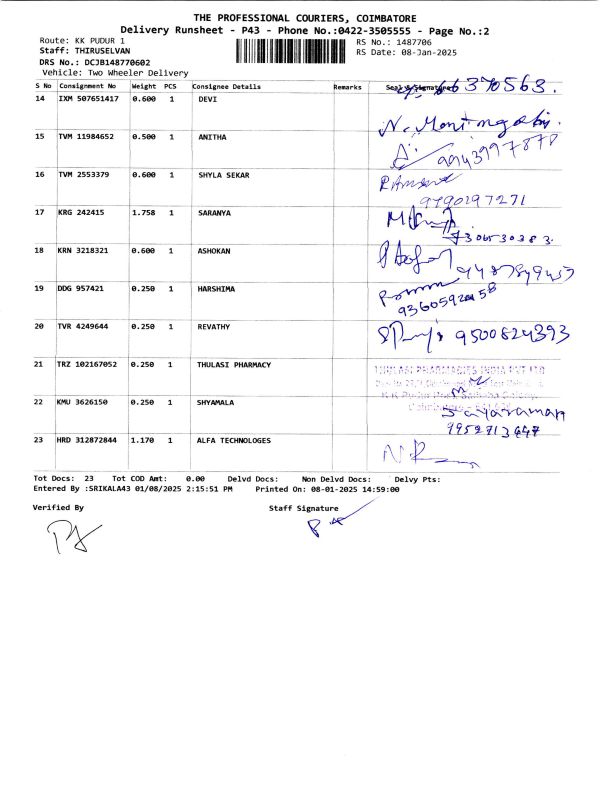 THE PROFESSIONAL COURIERS, COIMBATORE
Delivery Runsheet - P43 - Phone No.:0422-3505555 - Page No.:2
Route: KK PUDUR 1 RS No.: 1487706
Staff: THIRUSELVAN RS Date: 08-Jan-2025
DRS No.: DCJB148770602
Vehicle: Two Wheeler Delivery
S No Consignment No Weight PCS Consignee Details Remarks Seal & Signature
14 IXM 507651417 0.600 1 DEVI
15 TVM 11984652 0.500 1 ANITHA
9943997878
16 TVM 2553379 0.600 1 SHYLA SEKAR
9790197271
17 KRG 242415 1.758 1 SARANYA
18 KRN 3218321 0.600 1 ASHOKAN
19 DDG 957421 0.250 1 HARSHIMA
20 TVR 4249644 0.250 1 REVATHY
9500824393
21 TRZ 102167052 0.250 1 THULASI PHARMACY
THULASI PHARMACIES INDIA PVT LTD
22 KMU 3626150 0.250 1 SHYAMALA
Sayaraman
23 HRD 312872844 1.170 1 ALFA TECHNOLOGES
Tot Docs: 23 Tot COD Amt: 0.00 Delvd Docs: Non Delvd Docs: Delvy Pts:
Entered By :SRIKALA43 01/08/2025 2:15:51 PM Printed On: 08-01-2025 14:59:00
Verified By Staff Signature